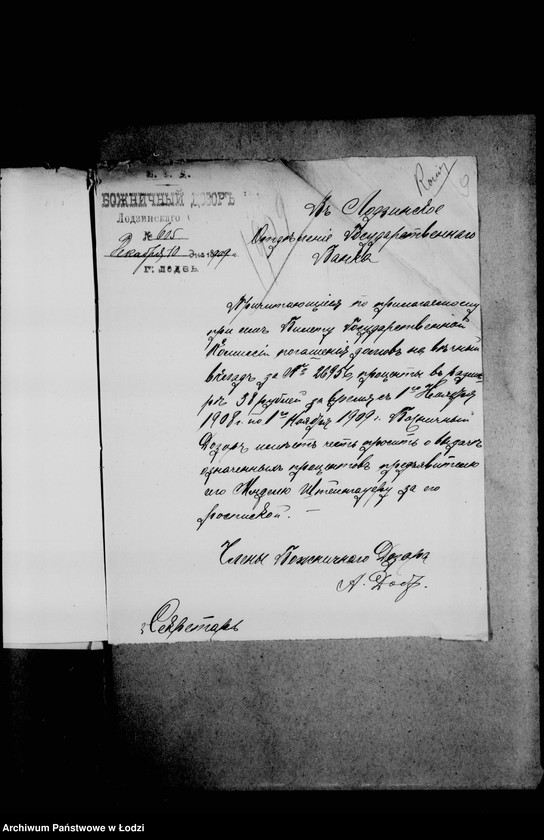 БОЖНИЧНЫЙ ДОЗОРЪ
Лодзинского
№ 605
Декабря 10 дня 1909 г.
г. Лодзь
9
Въ Лодзинское
Отдѣленіе Государственнаго
Банка
Причитающіеся по прилагаемому
при семъ билету Государственной
Коммисіи погашенія долговъ на вѣчный
вкладъ за № 26956 проценты въ размѣ-
рѣ 38 рублей за время съ 1го Ноября
1908 г. по 1го Ноября 1909 г. Божничный
Дозоръ имѣетъ честь просить о выдачѣ
означенныхъ процентовъ предъявителю
его Мнделю Штейнгауеру за его
роспиской. —
Члены Божничнаго Дозора
А.
Секретарь
Archiwum Państwowe w Łodzi